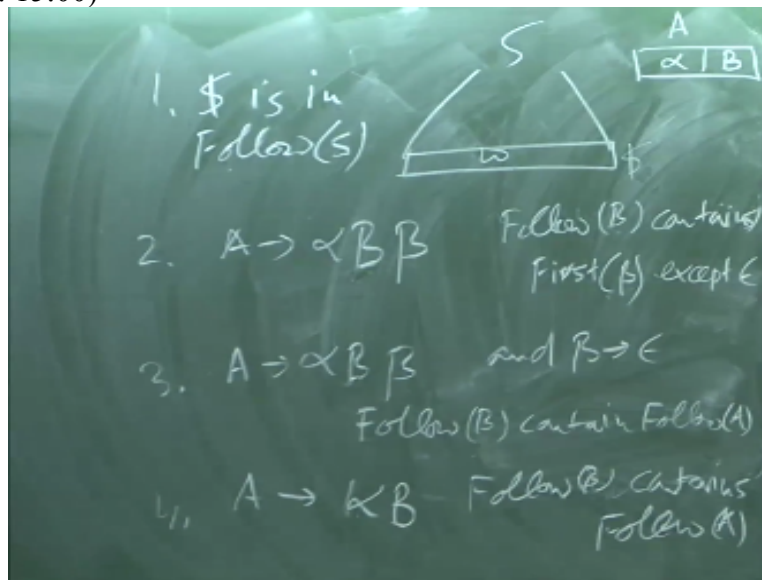 13:00)
S
A
α | B
1. $ is in
Follow(S)
w $
2. A → α B β Follow(B) contains
First(β) except ϵ
3. A → α B β and β → ϵ
Follow(B) contain Follow(A)
4. A → α B Follow(B) contains
Follow(A)